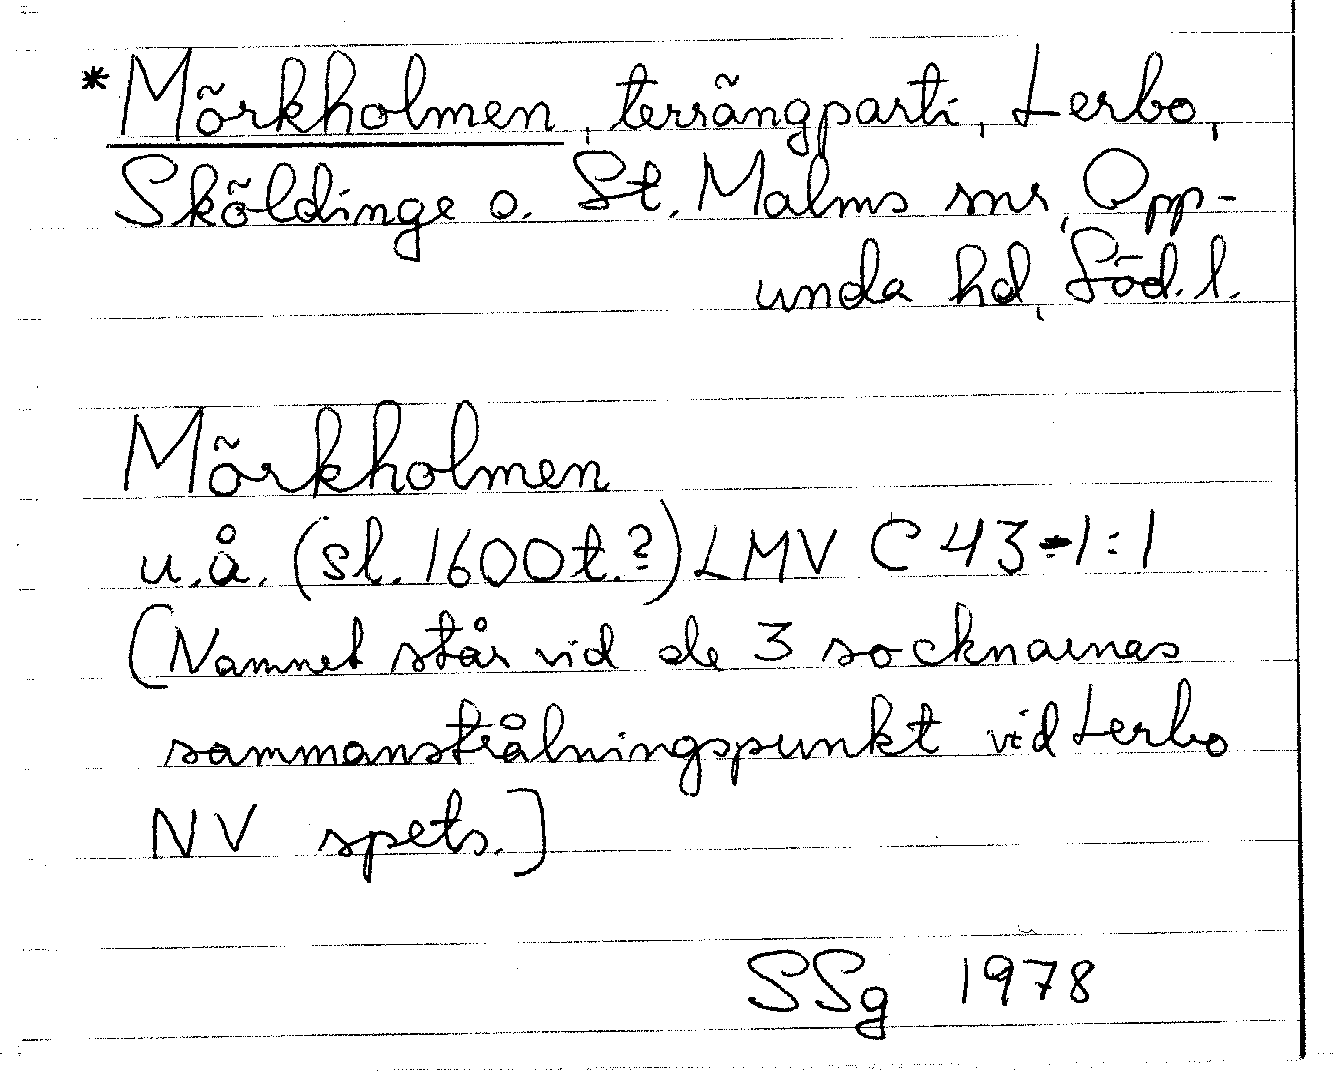 *Mörkholmen, terrängparti, Lerbo,
Sköldinge o. St. Malms snr, Opp-
unda hd, Söd. l.
Mörkholmen
u.å. (sl. 1600t.?) LMV C 43-1:1
(Namnet står vid de 3 socknarnas
sammanstrålningspunkt vid Lerbo
NV spets.]
SSg 1978